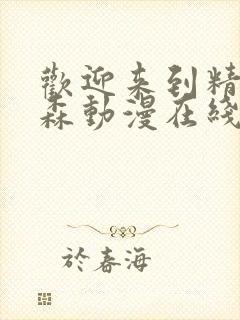 歡迎来到精
森動漫在綫
於春海